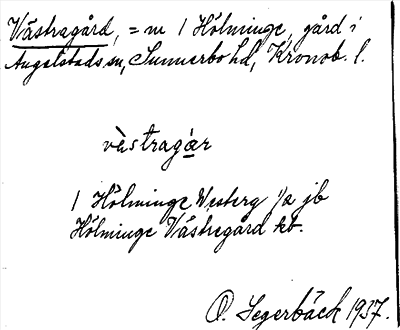 Västragård, = nr 1 Hölminge, gård i
Angelstads sn, Sunnerbo hd, Kronob. l.
västragår
1 Hölminge Westerg 1/2 jb
Hölminge Västregård kb.
O. Segerbäck 1937.